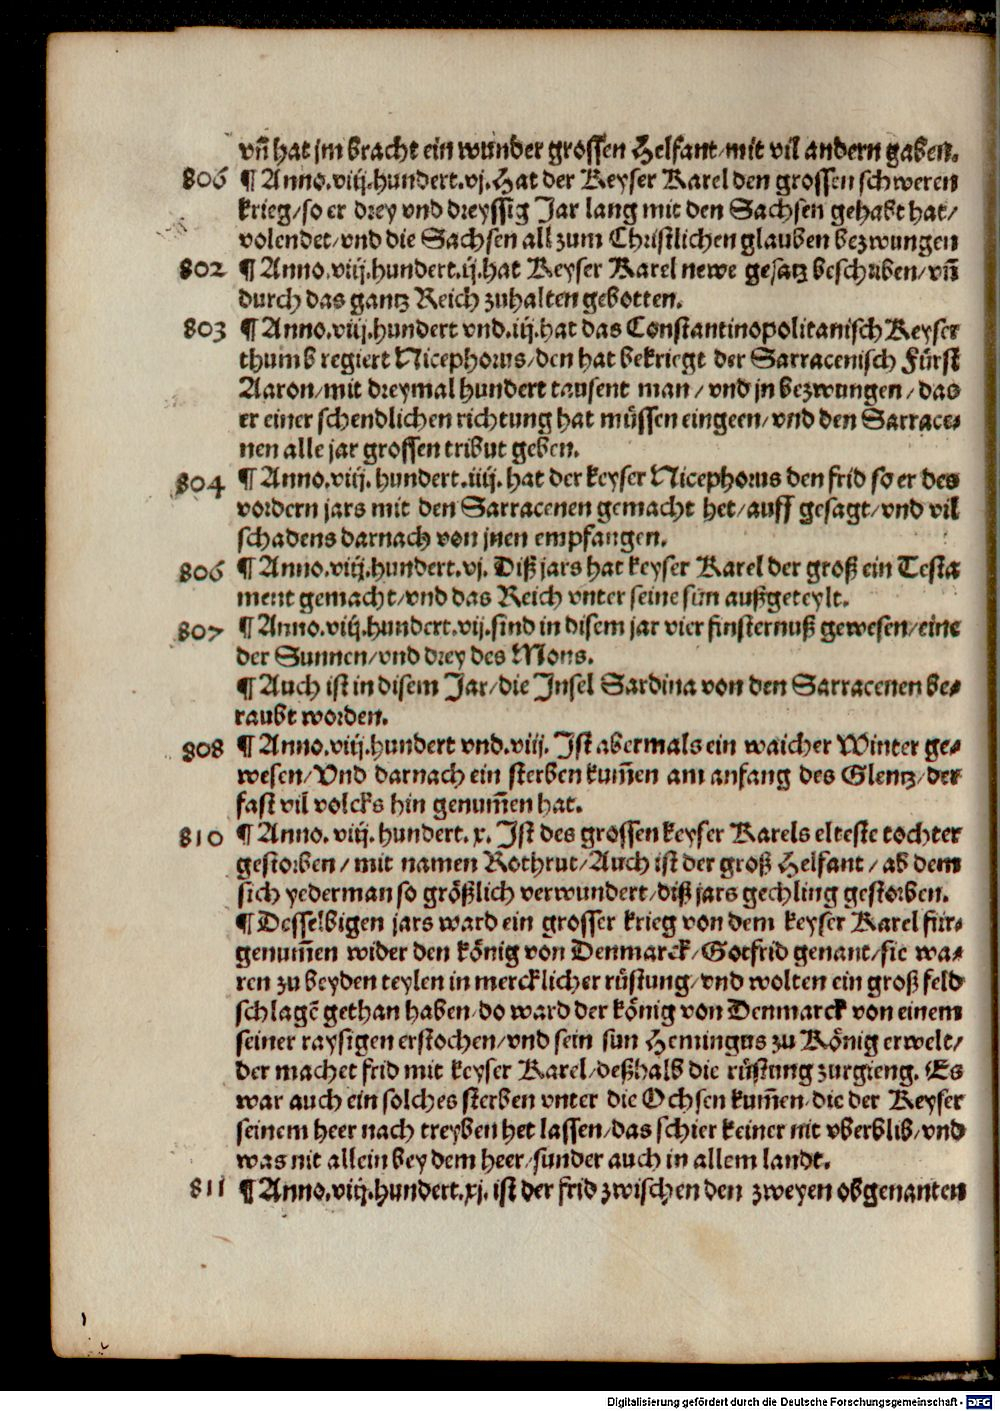 vn̄ hat jm bracht ein wunder grossen Helfant/mit vil andern gaben.
806 ¶ Anno.viij.hundert.vj.Hat der Keyser Karel den grossen schweren
krieg/so er drey vnd dreyssig Jar lang mit den Sachsen gehabt hat/
volendet/vnd die Sachsen all zum Christlichen glauben bezwungen
802 ¶ Anno.viij.hundert.ij.hat Keyser Karel newe gesatz beschriben/vn̄
durch das gantz Reich zuhalten gebotten.
803 ¶ Anno.viij.hundert vnd.iij.hat das Constantinopolitanisch Keyser
thumb regiert Nicephorus/den hat bekriegt der Sarracenisch Fürst
Aaron/mit dreymal hundert tausent man/vnd jn bezwungen/das
er einer schendlichen richtung hat müssen eingeen/vnd den Sarrace⸗
nen alle jar grossen tribut geben.
804 ¶ Anno.viij.hundert.iiij.hat der keyser Nicephorus den frid so er des
vordern jars mit den Sarracenen gemacht het/auff gesagt/vnd vil
schadens darnach von jnen empfangen.
806 ¶ Anno.viij.hundert.vj. Diß jars hat keyser Karel der groß ein Testa
ment gemacht/vnd das Reich vnter seine sün außgeteylt.
807 ¶ Anno.viij.hundert.vij.sind in disem jar vier finsternuß gewesen/eine
der Sunnen/vnd drey des Mons.
¶ Auch ist in disem Jar/die Insel Sardina von den Sarracenen be⸗
raubt worden.
808 ¶ Anno.viij.hundert vnd.viij. Ist abermals ein waicher Winter ge⸗
wesen/Vnd darnach ein sterben kum̄en am anfang des Glentz/der
fast vil volcks hin genum̄en hat.
810 ¶ Anno.viij.hundert.x. Ist des grossen keyser Karels elteste tochter
gestorben/mit namen Rothrut/Auch ist der groß Helfant/ab dem
sich yederman so größlich verwundert/diß jars gechling gestorben.
¶ Desselbigen jars ward ein grosser krieg von dem keyser Karel für⸗
genum̄en wider den könig von Denmarck/Gotfrid genant/sie wa⸗
ren zu beyden teylen in mercklicher rüstung/vnd wolten ein groß feld
schlagē gethan haben/do ward der könig von Denmarck von einem
seiner raysigen erstochen/vnd sein sun Hemingus zu König erwelt/
der machet frid mit keyser Karel/deßhalb die rüstung zurgieng. Es
war auch ein solches sterben vnter die Ochsen kum̄en/die der Keyser
seinem heer nach treyben het lassen/das schier keiner nit vberblib/vnd
was nit allein bey dem heer/sunder auch in allem landt.
811 ¶ Anno.viij.hundert.xj. ist der frid zwischen den zweyen obgenanten
Digitalisierung gefördert durch die Deutsche Forschungsgemeinschaft - DFG